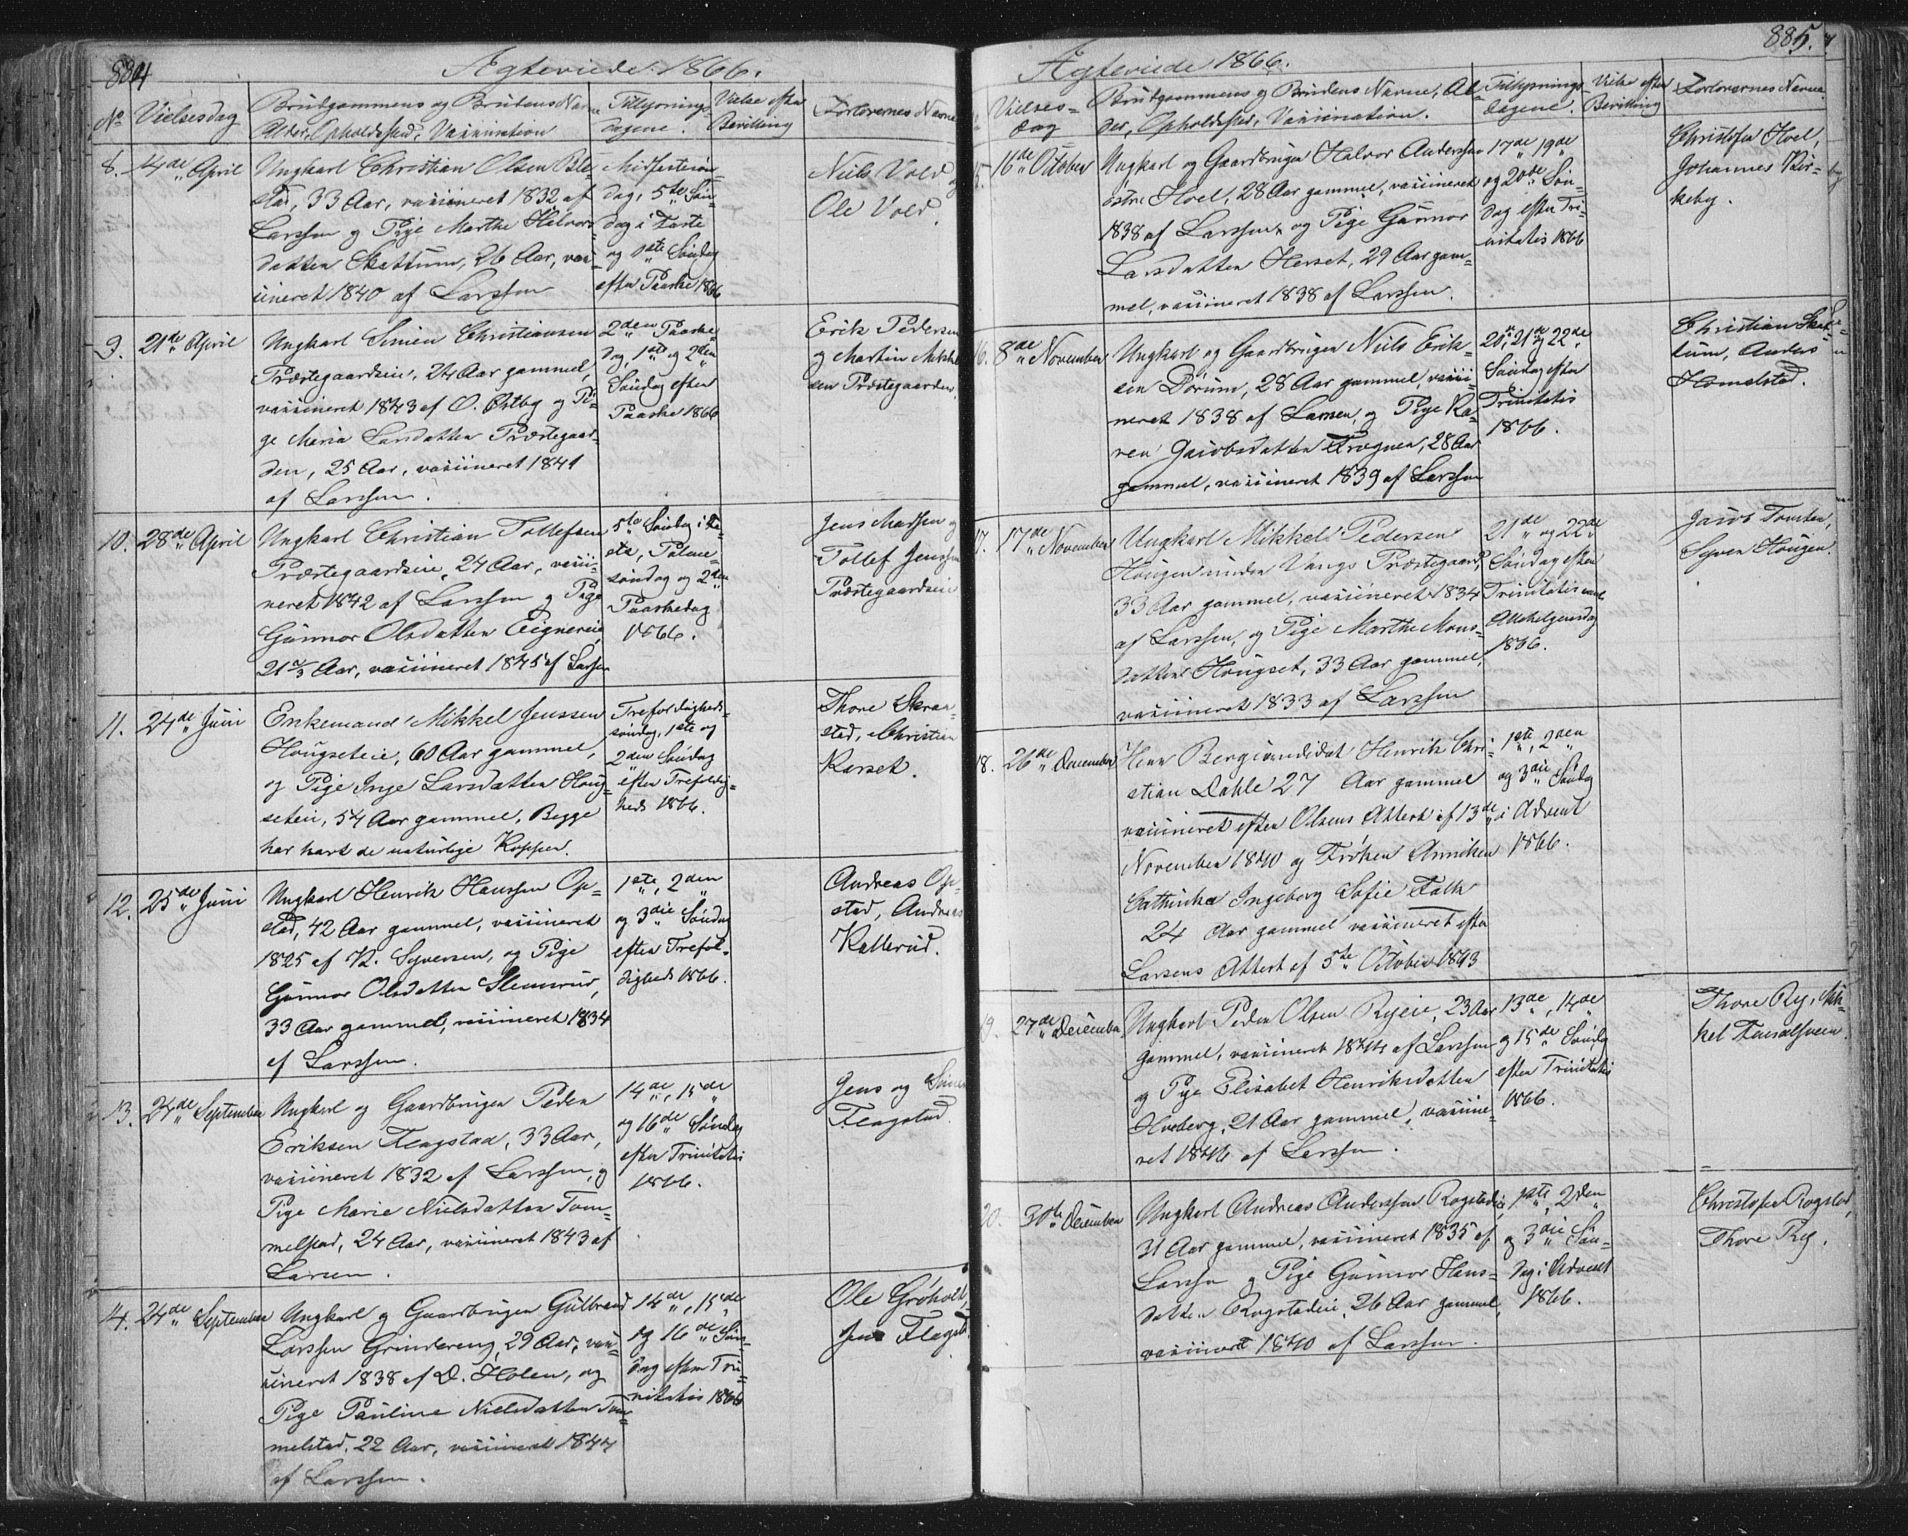 884
Ægteviede 1866.
No Vielsesdag
Brudgommens og Brudens Navne
Alder, Opholdssted, Vaccination
Tillysnings-
dagene.
Vielse efter
Bevilling
Forlovernes Navne
8. 14de April
Ungkarl Christian Olsen Ble-
stad, 33 Aar, vaccineret 1832 af
Larssen og Pige Marthe Halvors-
datter Skattum, 26 Aar, vac-
cineret 1840 af Larssen
Midfastesøn-
dag, 5te Søn-
dag i Faste
og 1ste Søndag
efter Paaske 1866
Niels Vold og
Ole Vold.
9. 21de April
Ungkarl Simen Christiansen
Præstegaardseie, 24 Aar gammel,
vaccineret 1843 af O. Østby og Pi-
ge Maria Larsdatter Præstegaar-
den, 25 Aar, vaccineret 1841
af Larssen.
2den Paaske
dag, 1ste og 2den
Søndag efter
Paaske 1866
Erik Pedersen
og Martin Mikkel
sen Præstegaarden.
10. 28de April
Ungkarl Christian Tollefsen
Præstegaardseie, 24 Aar, vacci-
neret 1842 af Larssen og Pige
Gunnor Olsdatter Eignereie,
21 Aar, vaccineret 1845 af Larssen
5te Søndag i Fa-
ste, Palme-
søndag og 2den
Paaskedag
1866.
Jens Madssen og
Tollef Jenssen
Præstegaardseie
11. 24de Juni
Enkemand Mikkel Jenssen
Hougseteie, 60 Aar gammel,
og Pige Inge Larsdatter Houg-
seteie, 54 Aar gammel, Begge
har havt de naturlige Kopper.
Trefoldigheds-
søndag, 1ste og
2den Søndag
efter Trefoldig-
heds 1866.
Thore Skraa-
stad, Christian
Karset.
12. 25de Juni
Ungkarl Henrik Hanssen Op-
stad, 42 Aar gammel, vaccineret
1825 af K. Syversen, og Pige
Gunnor Olsdatter Slemsrud,
33 Aar gammel, vaccineret 1834
af Larssen.
1ste, 2den
og 3die Søndag
efter Trefol-
digheds 1866.
Andreas Op-
stad, Andreas
Kallerud.
13. 24de September
Ungkarl og Gaardbruger Peder
Eriksen Flagstad, 33 Aar,
vaccineret 1832 af Larssen, og
Pige Marie Nielsdatter Tom-
melstad, 24 Aar, vaccineret 1843 af
Larsen.
14de, 15de
og 16de Søndag
efter Trinitatis
1866.
Jens og Simen
Flagstad.
14. 24de September
Ungkarl og Gaardbruger Gulbrand
Larssen Grindereng, 29 Aar, vac-
cineret 1838 af D. Holen, og
Pige Pauline Nielsdatter Tom-
melstad, 22 Aar, vaccineret 1844
af Larssen.
14de, 15de
og 16de Søn-
dag efter Tri-
nitatis 1866
Ole Grøholt,
Jens Flagstad.
885.
Ægteviede 1866.
Vielses-
dag
Brudgommens og Brudens Navne, Al-
der, Opholdssted, Vaccination.
Tillysnings-
dagene.
Vielse efter
Bevilling
Forlovernes Navne
15. 16de October
Ungkarl og Gaardbruger Halvor Anderssen
østre Hoel, 28 Aar gammel, vaccineret
1838 af Larssen og Pige Gunnor
Larsdatter Herset, 29 Aar gam-
mel, vaccineret 1838 af Larssen.
17de, 19de
og 20de Søn-
dag efter Tri-
nitatis 1866
Christofer Hoel,
Johannes Bir-
keby.
16. 8de November
Ungkarl og Gaardbruger Niels Erik-
sen Dørum, 28 Aar gammel, vacci-
neret 1838 af Larssen, og Pige Ka-
ren Jacobsdatter Frognen, 28 Aar
gammel, vaccineret 1839 af Larssen
20, 21de og 22de
Søndag efter
Trinitatis
1866.
Christian Skat-
tum, Anders
Hommelstad.
17. 17de November
Ungkarl Mikkel Pedersen
Hougen under Vangs Præstegaard,
33 Aar gammel, vaccineret 1834
af Larssen, og Pige Marthe Mons-
datter Hougset, 33 Aar gammel,
vaccineret 1833 af Larssen
21de og 22de
Søndag efter
Trinitatis samt
Allehelgensdag
1866.
Jacob Tomter,
Syver Hougen.
18. 26de December
Herr Bergcandidat Henrik Chri-
stian Dahle 27 Aar gammel
vaccineret efter Olsens Attest af 13de
November 1840 og Frøken Anniken
Cathinka Ingeborg Sofie Falk
24 Aar gammel vaccineret efter
Larsens Attest af 5te October 1843
1ste, 2den
og 3die Søndag
i Advent
1866.
19. 27de December
Ungkarl Peder Olsen Ryeie, 23 Aar
gammel, vaccineret 1844 af Larssen
og Pige Elisabet Henriksdatter
Hveberg, 21 Aar gammel, vaccine-
ret 1846 af Larssen.
13de, 14de
og 15de Søndag
efter Trinitatis
1866.
Thore Ry, Mik-
kel
20. 30te December
Ungkarl Andreas Anderssen Rogstadeie,
31 Aar gammel, vaccineret 1835 af
Larssen og Pige Gunnor Hans-
datter Rogstadeie, 26 Aar gammel,
vaccineret 1840 af Larssen.
1ste, 2den
og 3die Søn-
dag i Advent
1866.
Christopher Rogstad,
Thore Ry.